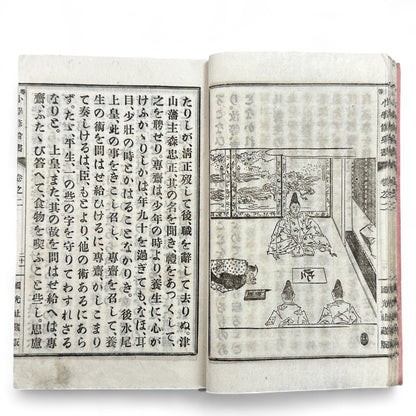 たりしが、清正歿して後、職を辭して去りぬ、津
山藩主森忠正、其の名を聞き、禮をあつくして、
之を聘せり、專齋は、少年の時より、養生に、心が
けふかゝりしかば、年九十を過ぎても、なほ、耳
目、少壯の時とかはることなかりき、後水尾
上皇、此の事をきこし召し、專齋を召して、養
生の術を問はせ給ひけるに、專齋、かしこまり
て奏しけるは、臣もとより、他の術あるにあら
ず、たゞ、平生、一の些の字を守りてわすれざる
なりと、上皇また、其の故を問はせ給へば、專
齋、ふたゝび答へて、食物を喫ふこと些し、思慮
小學修身書
卷之二
國光社藏版
些